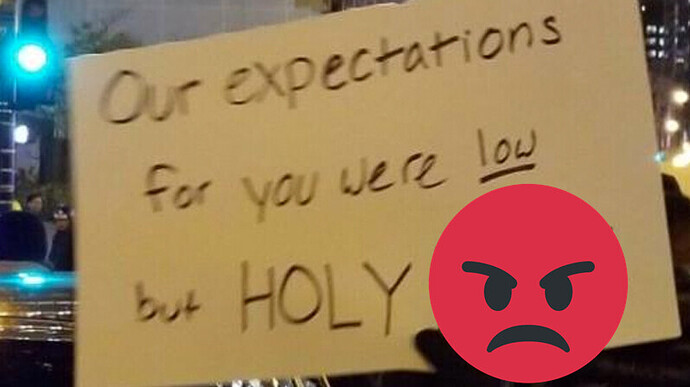 Our expectations
for you were low
but HOLY